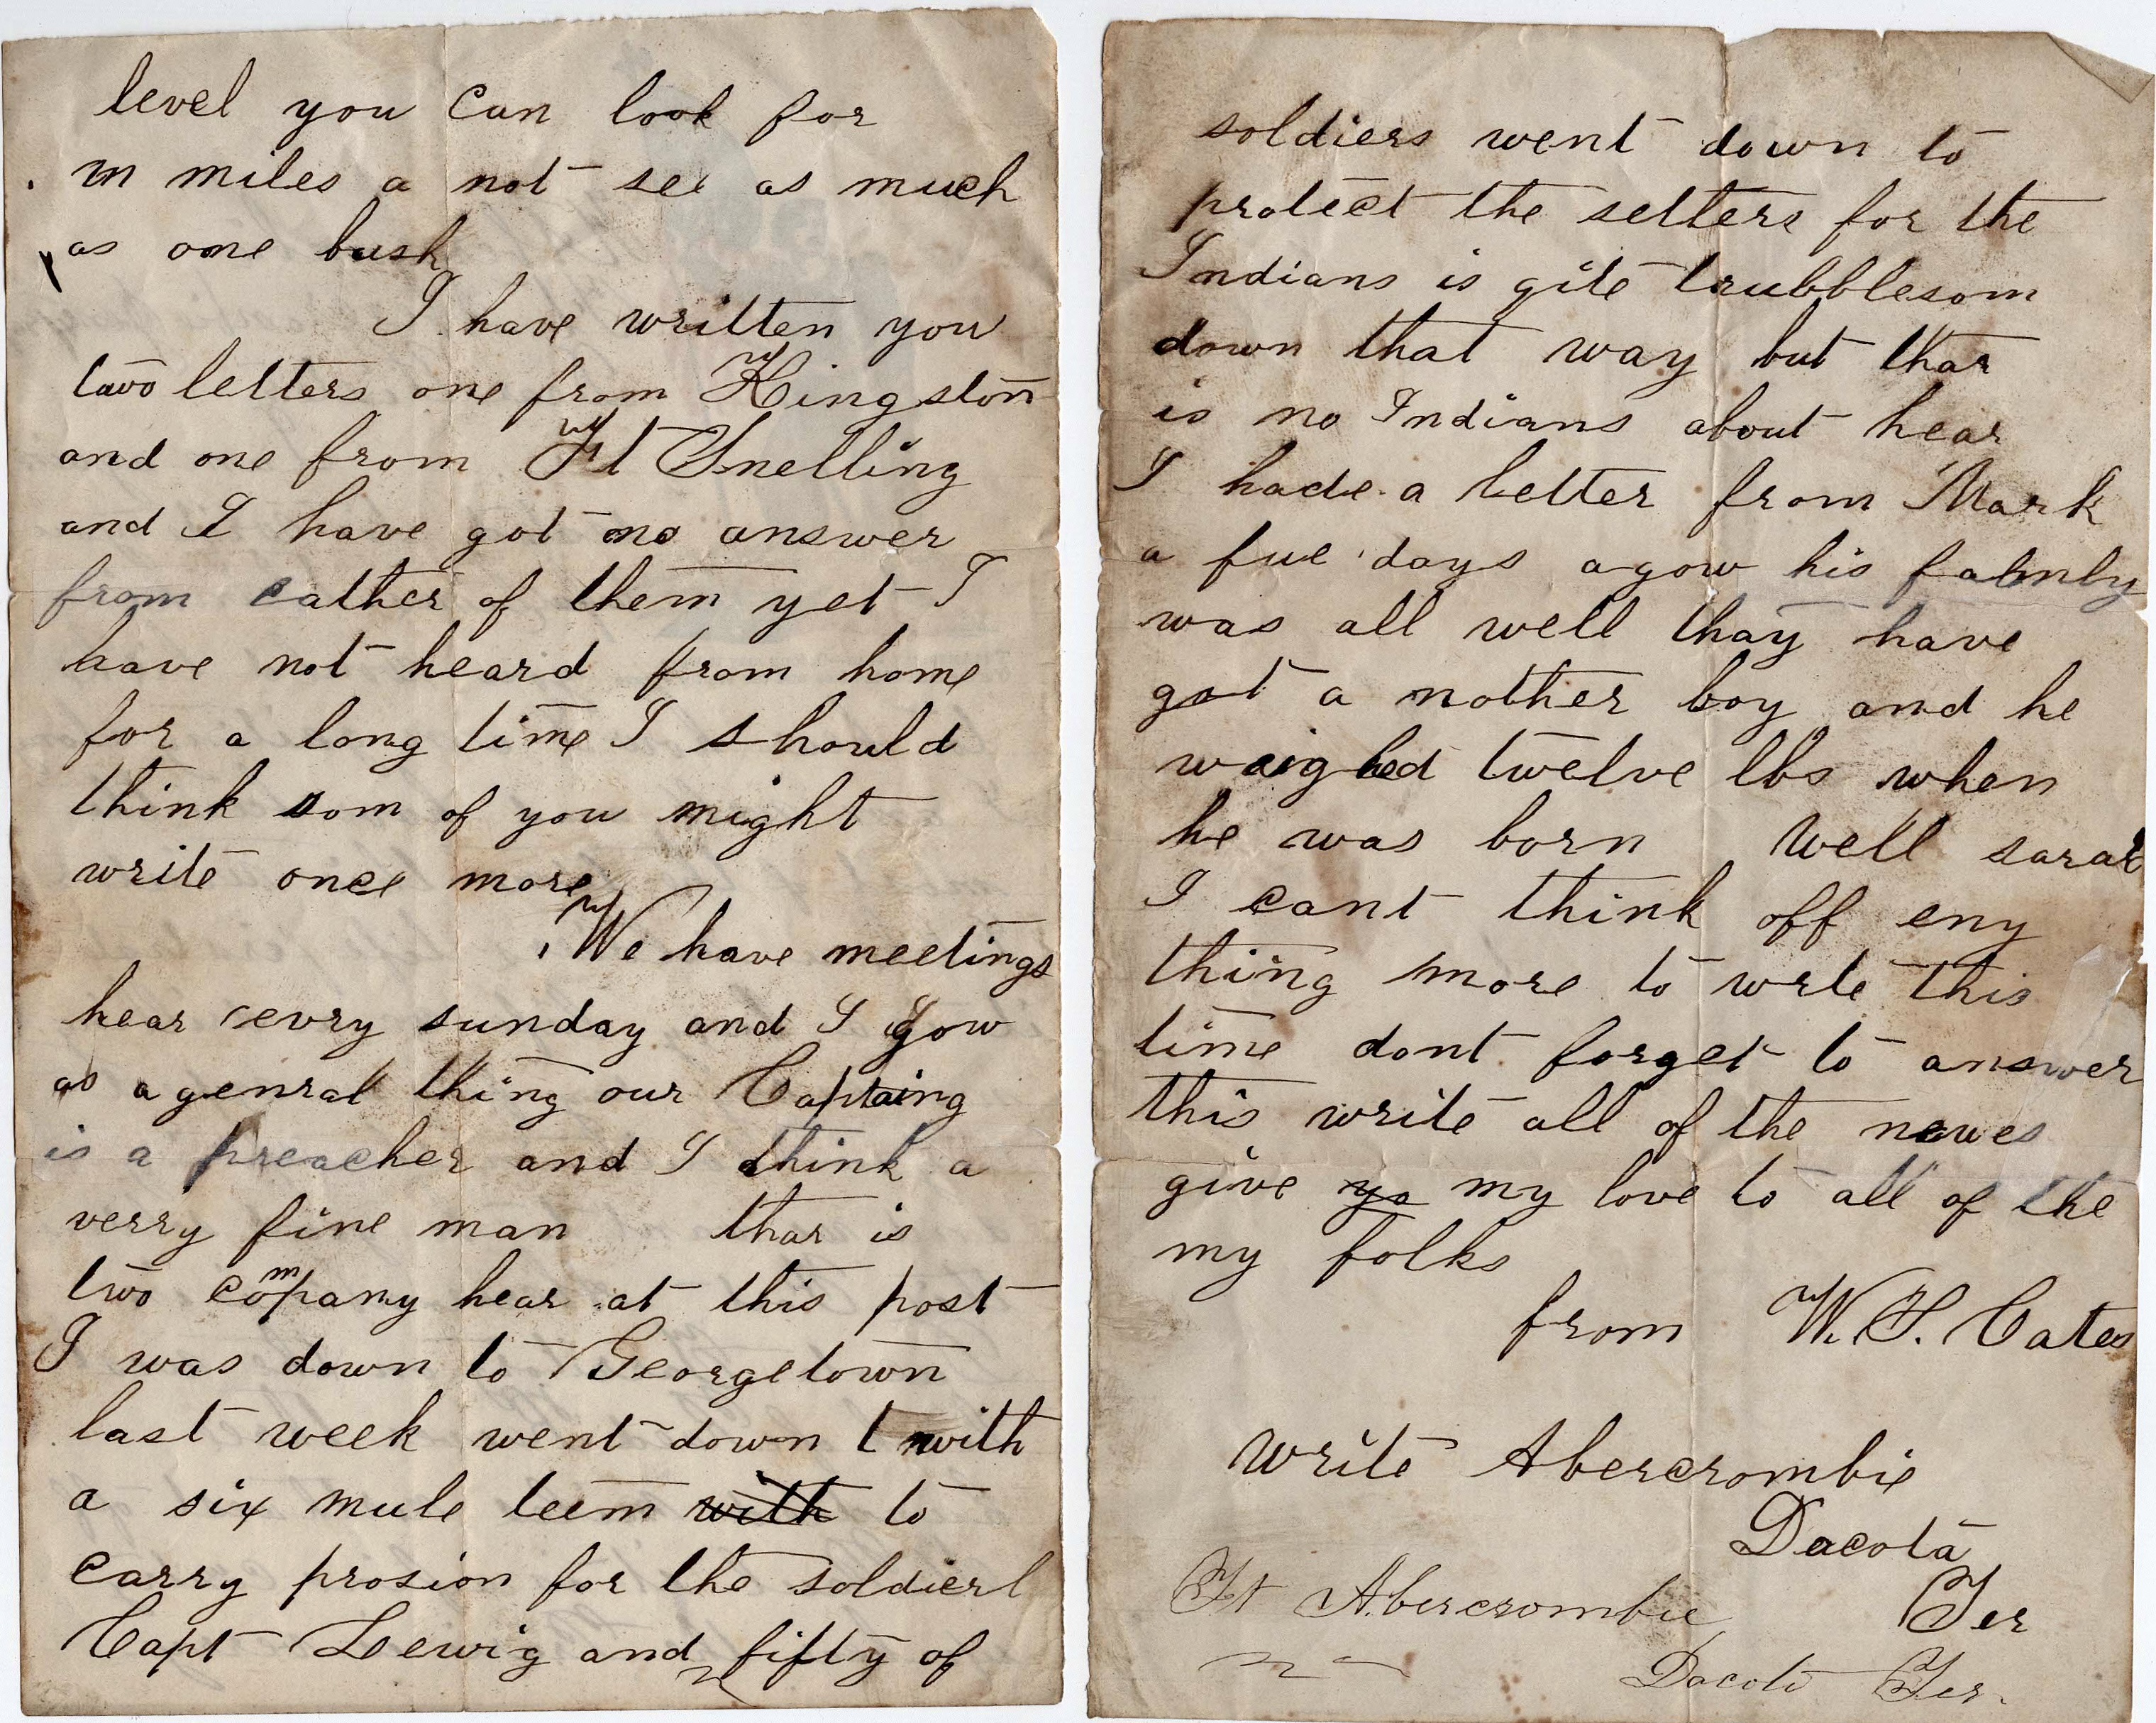 level you can look for
m miles a not see as much
as one bush
I have written you
two letters one from Kingston
and one from Ft Snelling
and I have got no answer
from eather of them yet I
have not heard from home
for a long time I should
think som of you might
write once more
We have meetings
hear evry sunday and I gow
as a genral thing our Captaing
is a preacher and I think a
verry fine man thar is
two company hear at this post
I was down to Georgetown
last week went down with
a six mule teem with to
carry prosion for the soldierl
Capt Lewig and fifty of
soldiers went down to
protect the setters for the
Indians is gite trubblesom
down that way but thar
is no Indians about hear
I hade a letter from Mark
a fue days agow his
was all well thay have
got a nother boy and he
waighed twelve lbs when
he was born Well sarah
I cant think off eny
thing more to wrte this
time dont forget to answer
this write all of the newes
give yo my love to all of the
my folks
from W. S. Cates
Write Abercrombie
Dacota
Ter
Ft Abercrombie
Dacota Ter.